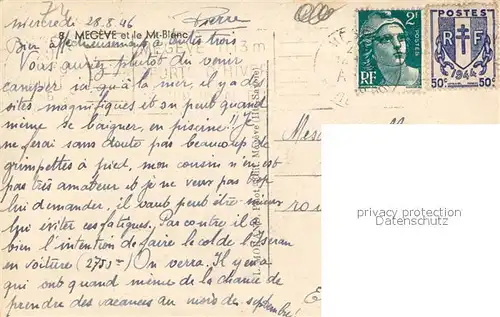 Mercredi 28.8.46 Pierre
8. MEGÈVE et le Mt-Blanc
Bien affectueusement à toutes trois
Vous auriez plutôt du venir
camper ici qu'à la mer, il y a de
sites magnifiques et on peut quand
même se baigner, en piscine! Je
ne ferai sans doute pas beaucoup de
grimpettes à pied, mon cousin n'en est
pas très amateur et je ne veux pas trop
lui demander, il vaut peut être mieux
lui éviter ces fatigues. Par contre il a
bien l'intention de faire le col de l'Iseran
en voiture (2769m) On verra. Il y en a
qui ont quand même de la chance de
prendre des vacances au mois de septembre!
Megève (Hte-Savoie)
2F
RF
POSTES
RF
50c 50c
1944
privacy protection